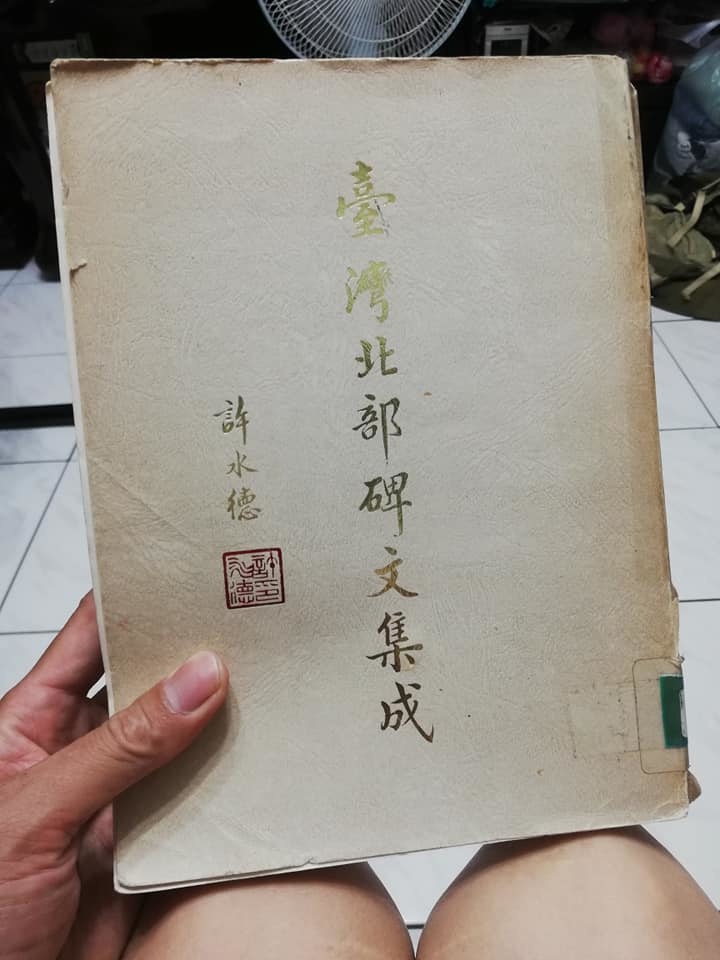 臺灣北部碑文集成
許水德
許水德印